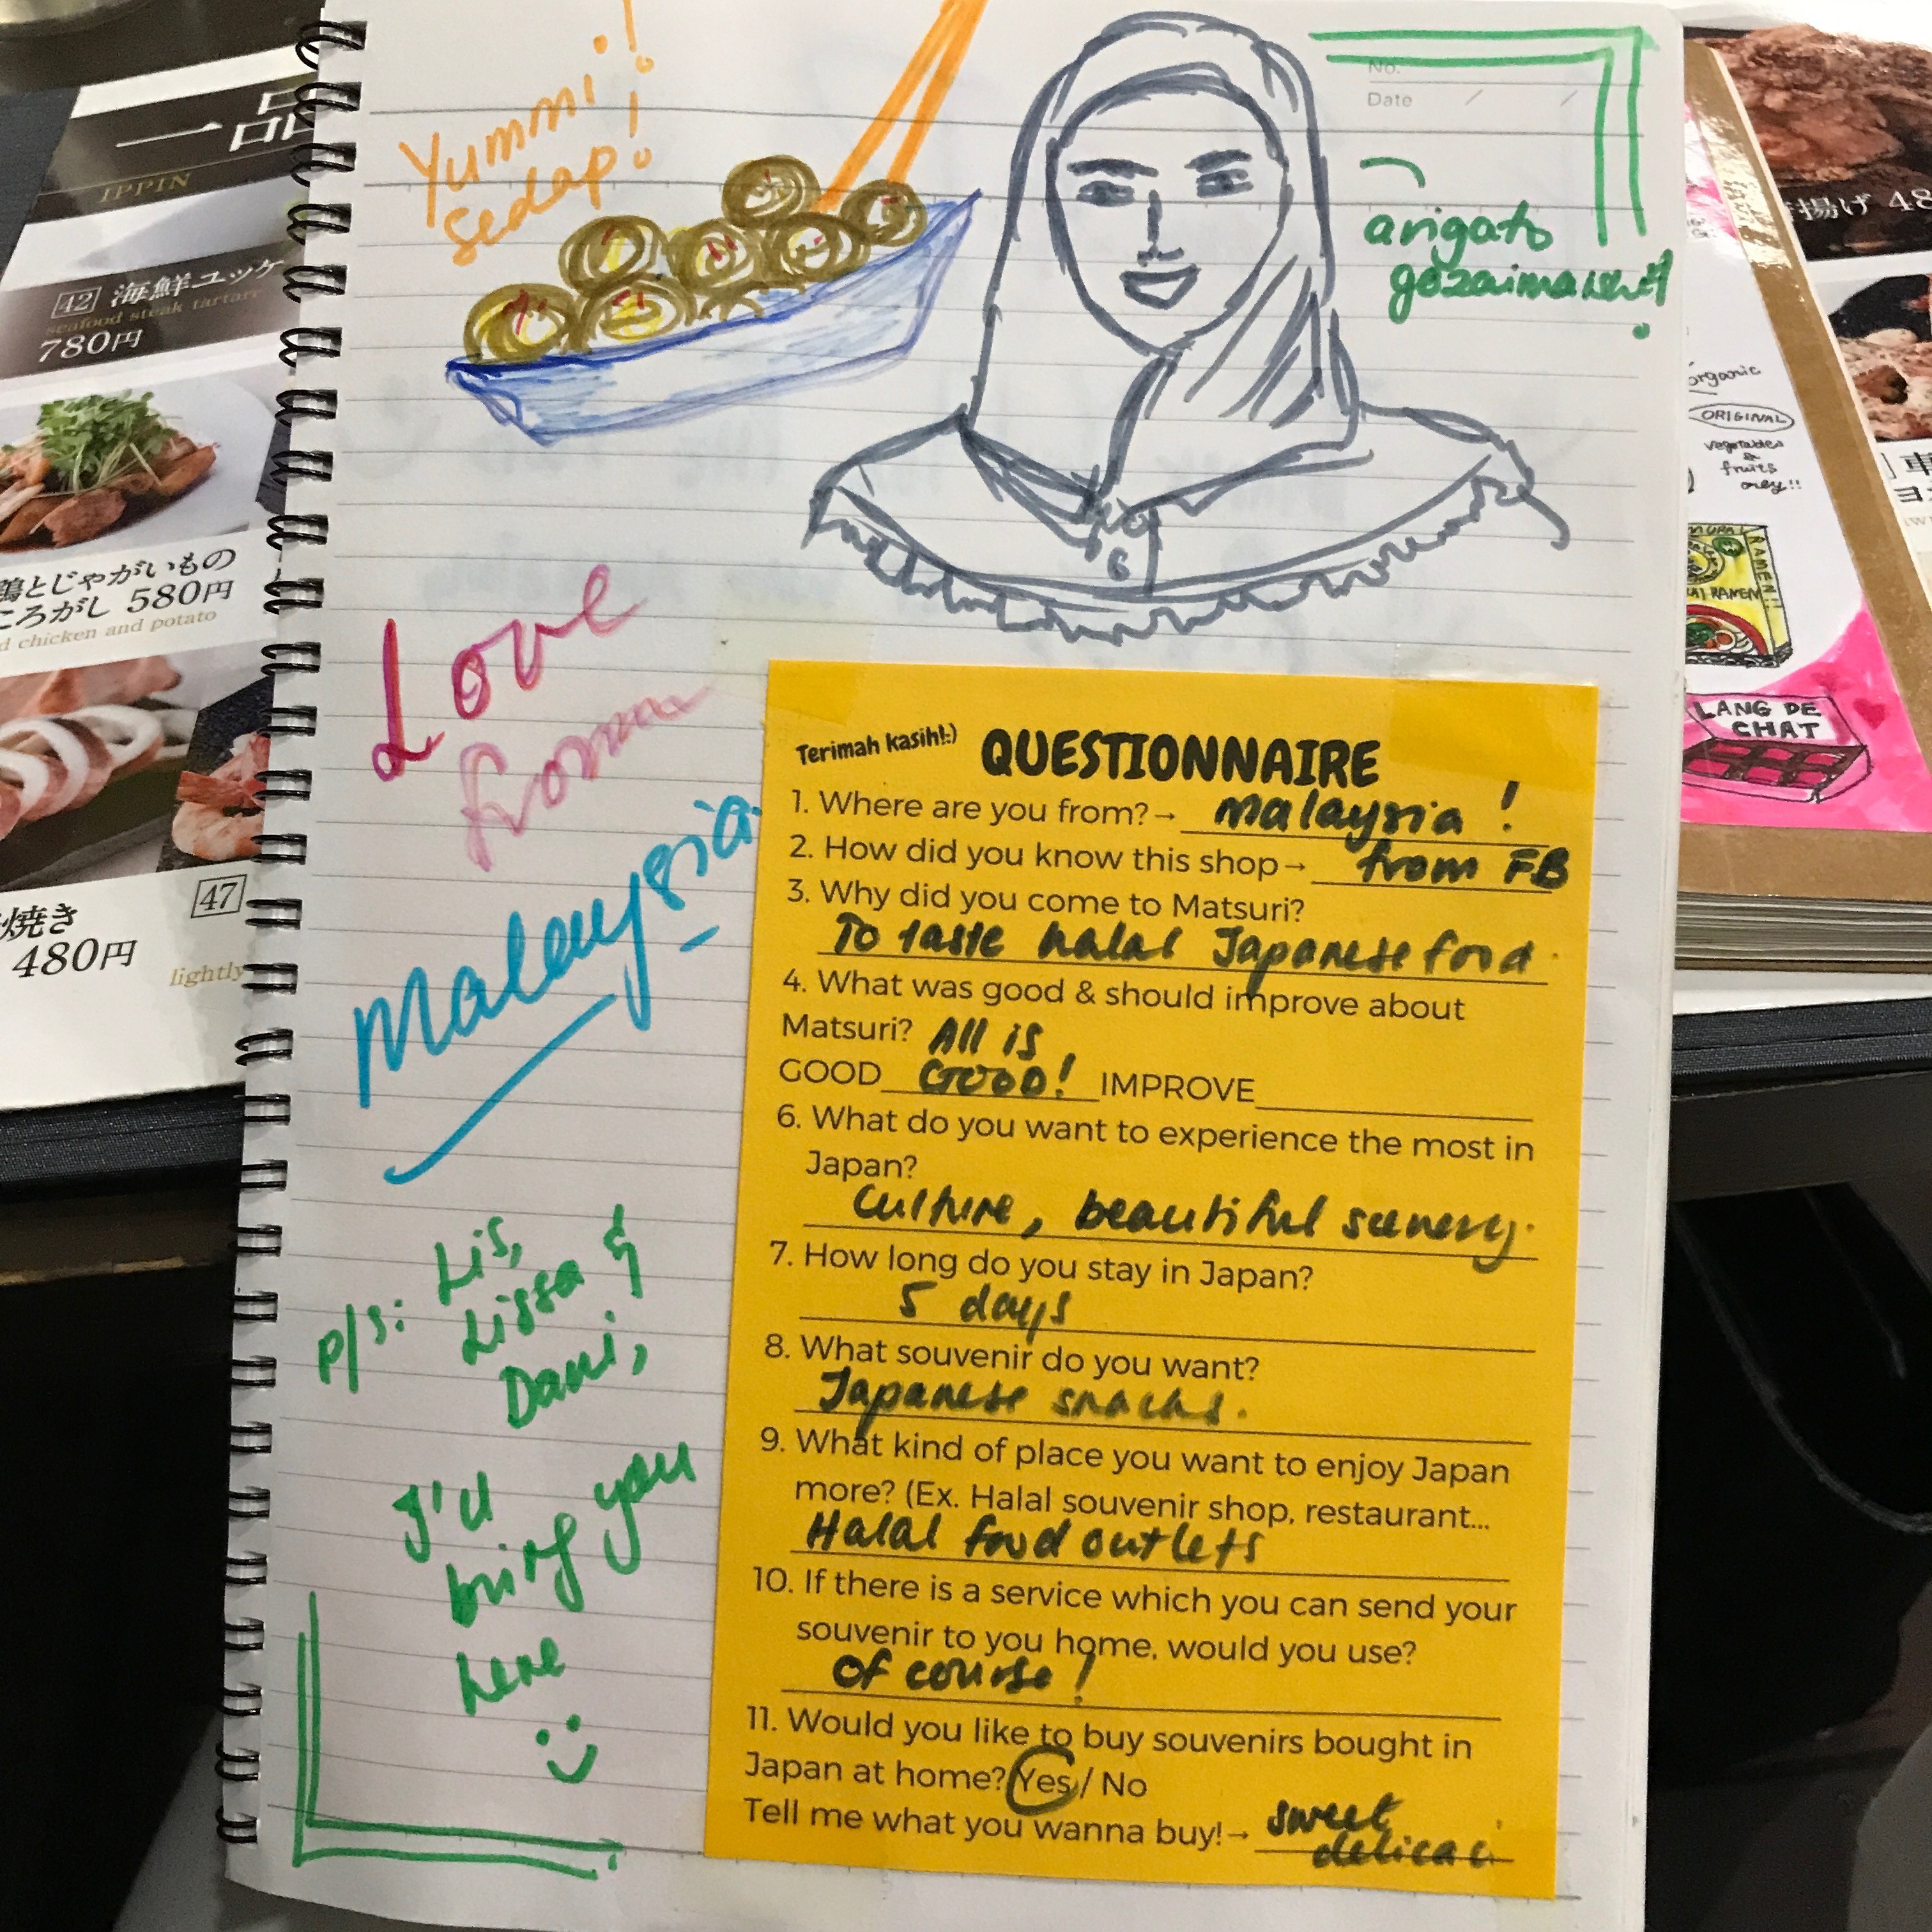 一品
IPPIN
42 海鮮ユッケ
seafood steak tartare
780円
鶏とじゃがいもの
ころがし 580円
chicken and potato
47
焼き
480円
lightly
Yummi!
sedap!
No.
Date / /
arigato
gozaimasu!
Love
from
Malaysia.
p/s: Lis,
Lissa &
Dani,
I'll
bring you
here
Terimah kasih!:)
QUESTIONNAIRE
1. Where are you from?→ malaysia!
2. How did you know this shop→ from FB
3. Why did you come to Matsuri?
To taste halal Japanese food.
4. What was good & should improve about
Matsuri? All is
GOOD GOOD! IMPROVE
6. What do you want to experience the most in
Japan?
Culture, beautiful scenery.
7. How long do you stay in Japan?
5 days
8. What souvenir do you want?
Japanese snacks.
9. What kind of place you want to enjoy Japan
more? (Ex. Halal souvenir shop, restaurant...
Halal food outlets
10. If there is a service which you can send your
souvenir to you home, would you use?
Of course!
11. Would you like to buy souvenirs bought in
Japan at home? Yes / No
Tell me what you wanna buy!→ sweet
delicaci
揚げ 48
organic
ORIGINAL
vegetables
&
fruits
only!!
RAMEN!!
RAMEN
LANG DE
CHAT